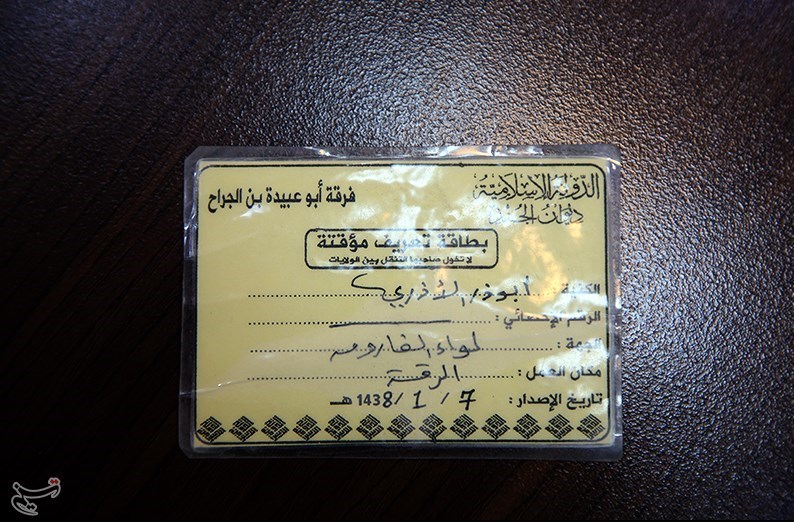 الدولة الإسلامية
ديوان الجند
فرقة أبو عبيدة بن الجراح
بطاقة تعريف مؤقتة
لا تخول صاحبها التنقل بين الولايات
الكنية : أبوذر الأذري
الرقم الإحصائي :
الجهة : لواء الفاروق
مكان العمل : الرقة
تاريخ الإصدار : 7 / 1 / 1438 هـ
تسنيم